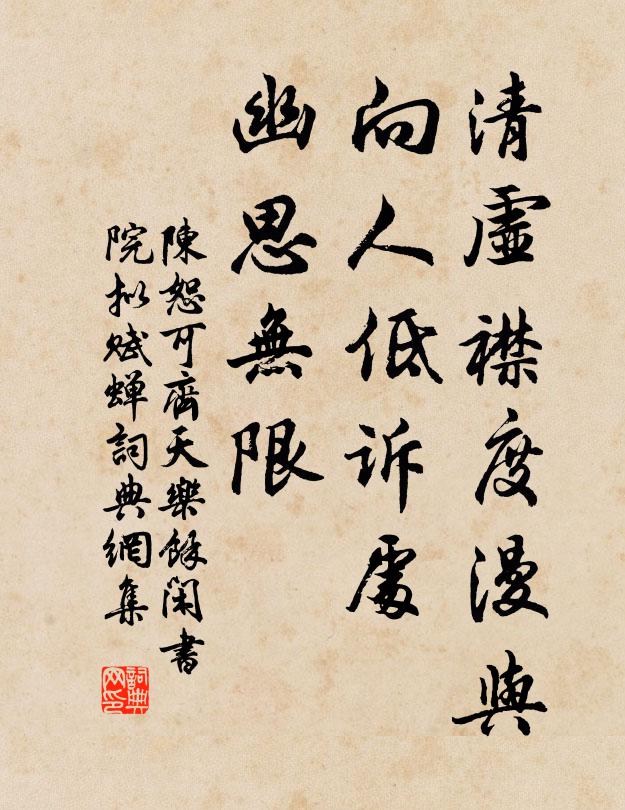 清虛襟度漫與
向人低訴處
幽思無限
陳恕可齊天樂餘閑書
院拟賦蟬詞典網集
詞典
网印